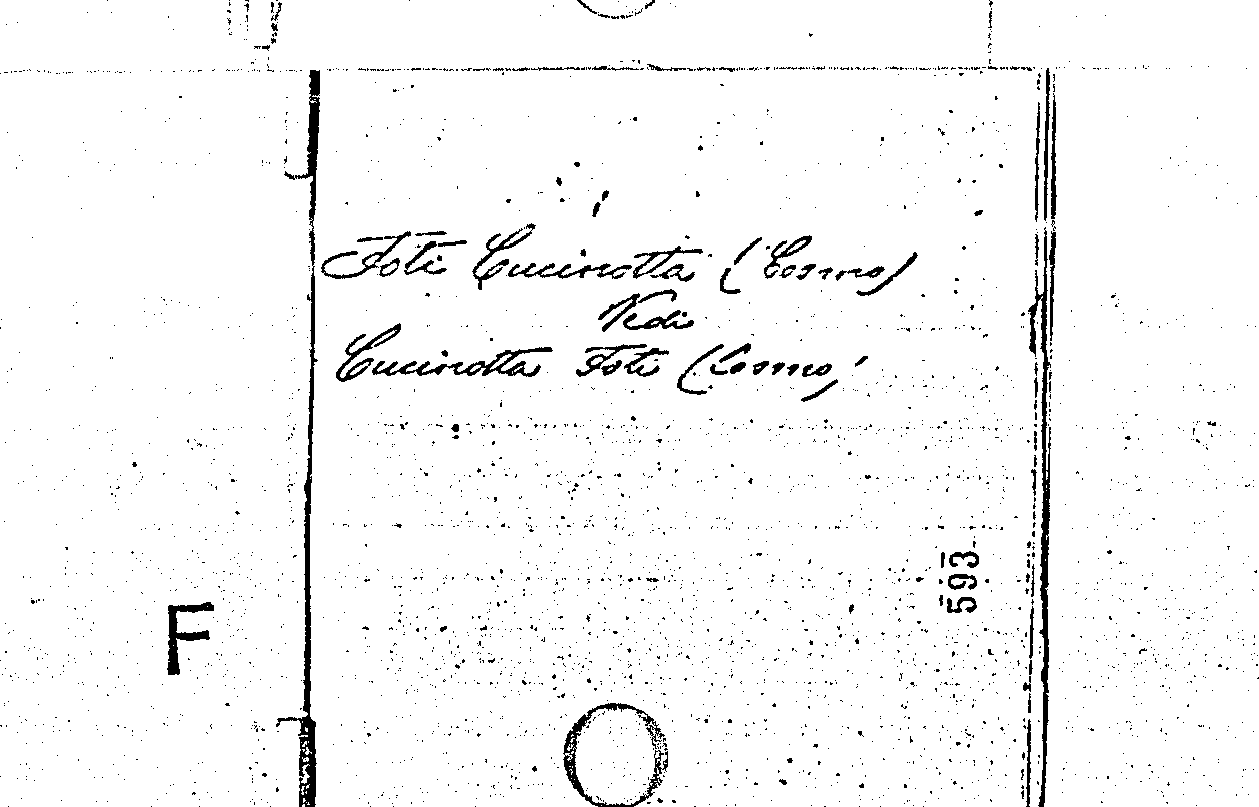 Foti Cucinotta (Cosmo)
Vedi
Cucinotta Foti (Cosmo)
593
F